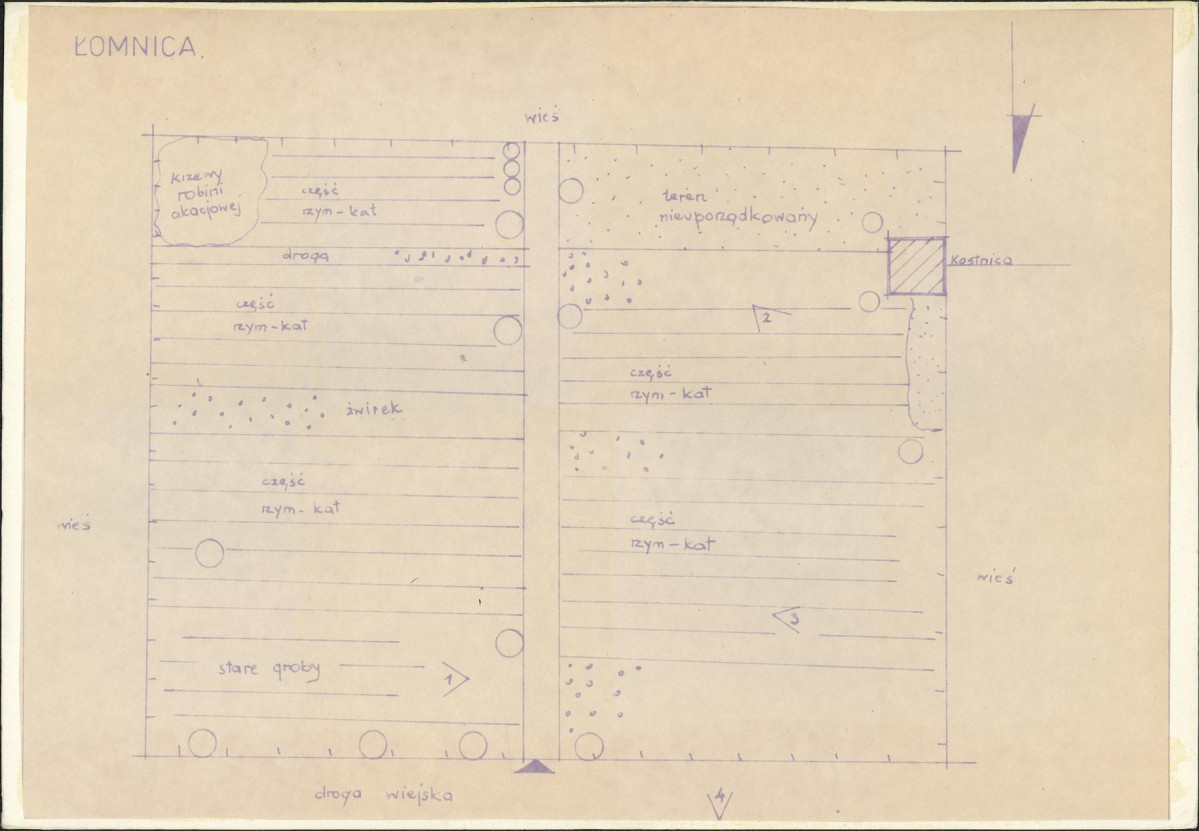 ŁOMNICA.
wieś
krzewy
robinii
akacjowej
część
rzym-kat
teren
nieuporządkowany
droga
Kostnica
część
rzym-kat
2
część
rzym-kat
żwirek
część
rzym-kat
część
rzym-kat
wieś
wieś
3
stare groby
1
droga wiejska
4